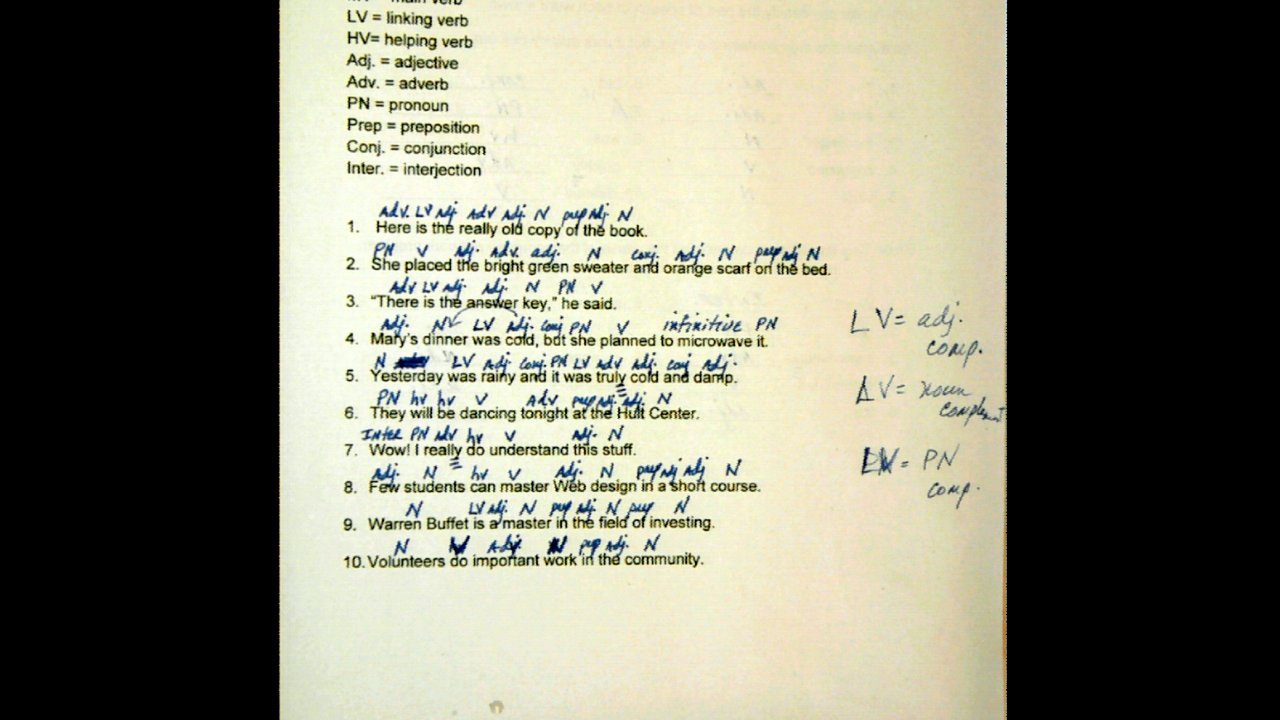 main verb
LV = linking verb
HV= helping verb
Adj. = adjective
Adv. = adverb
PN = pronoun
Prep = preposition
Conj. = conjunction
Inter. = interjection
Adv. LV Adj. Adv Adj. N prep Adj. N
1. Here is the really old copy of the book.
PN V Adj. Adv. adj. N conj. Adj. N prep adj N
2. She placed the bright green sweater and orange scarf on the bed.
Adv LV Adj. Adj. N PN V
3. “There is the answer key,” he said.
Adj. N LV Adj. conj PN V infinitive PN
4. Mary's dinner was cold, but she planned to microwave it.
N LV Adj. conj. PN LV Adv Adj. conj Adj.
5. Yesterday was rainy and it was truly cold and damp.
PN hv hv V Adv prep Adj. Adj. N
6. They will be dancing tonight at the Hult Center.
Inter PN adv hv V Adj. N
7. Wow! I really do understand this stuff.
Adj. N hv V Adj. N prep Adj Adj N
8. Few students can master Web design in a short course.
N LV Adj. N prep Adj. N prep N
9. Warren Buffet is a master in the field of investing.
N V Adj. N prep Adj. N
10. Volunteers do important work in the community.
LV = adj.
comp.
LV = noun
complement
LV = PN
comp.